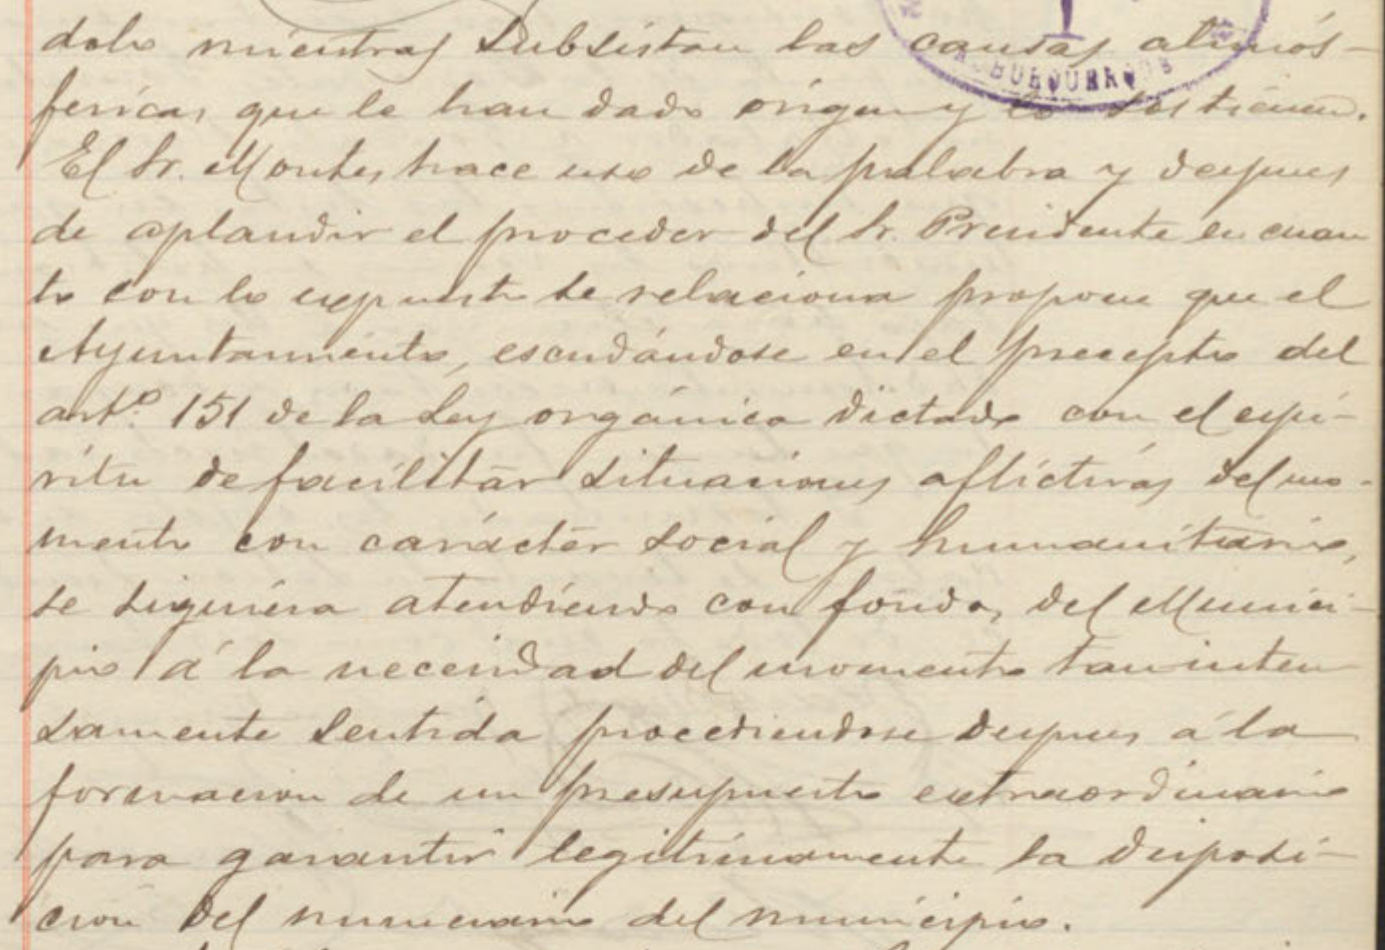 dolo mientras subsistan las causas atmós-
fericas que le han dado origen y lo sostienen.
El Sr. Montes hace uso de la palabra y despues
de aplaudir el proceder del Sr. Presidente en cuan
to con lo expuesto se relaciona propone que el
Ayuntamiento, escudándose en el precepto del
artº. 151 de la Ley orgánica dictado con el espi-
ritu de facilitar situaciones aflictivas del mo-
mento con carácter social y humanitario,
se siguiera atendiendo con fondos del Munici-
pio á la necesidad del momento tan inten
samente sentida procediendose despues á la
formacion de un presupuesto extraordinario
para garantir legitimamente la disposi-
cion del numerario del municipio.